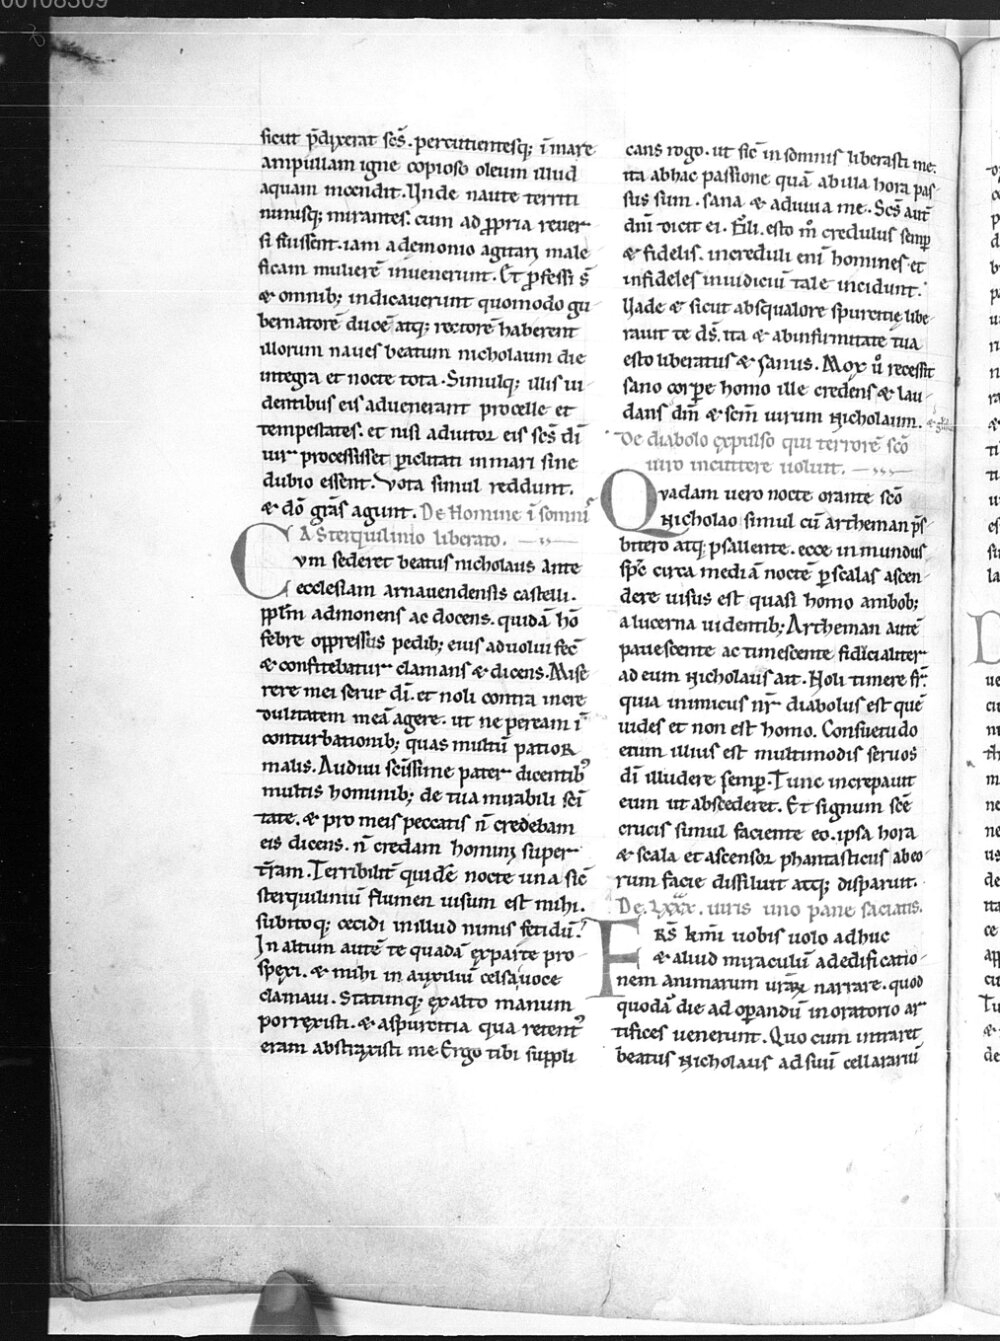 00108309
sicut p̄dixerat sc̄s. percutientesq; ī mare
ampullam igne copioso oleum illud
aquam incendit. Unde naute territi
nimisq; mirantes. cum ad ꝓpria reuer
si fuissent. iam a demonio agitari male
ficam mulierē inuenerunt. Et ꝓfessi s̄
& omnib; indicauerunt quomodo gu
bernatorē ducē atq; rectorē haberent
illorum naues beatum nicholaum die
integra et nocte tota. Simulq; illis ui
dentibus eis aduenerant procelle et
tempestates. et nisi adiutor eis sc̄s dī
uir processisset ꝑiclitati in mari sine
dubio essent. Vota simul reddunt.
& dō grās agunt. De Homine ī somnis
A Sterquilinio liberato.
Cvm sederet beatus nicholaus ante
ecclesiam arnauendensis castelli.
pplm̄ admonens ac docens. quidā hō
febre oppressus pedib; eius aduolui fec̄
& confitebatur clamans & dicens. Mise
rere mei serue dī. et noli contra incre
dulitatem meā agere. ut ne peream ī
conturbationib; quas multū patior
malis. Audiui sc̄issime pater dicentib'
multis hominib; de tua mirabili sc̄i
tate. & pro meis peccatis n̄ credebam
eis dicens. n̄ credam homini super
t̄ram. Terribilit̄ quidē nocte una sic̄
sterquiliniū flumen uisum est mihi.
subitoq; cecidi in illud nimis fetidū.
In altum autē te quadā ex parte pro
spexi. & mihi in auxiliū celsa uoce
clamaui. Statimq; ex alto manum
porrexisti. & a spurcitia qua retent'
eram abstraxisti me. Ergo tibi suppli
cans rogo. ut sic̄ in somnis liberasti me.
ita ab hac passione quā ab illa hora pas
sus sum. sana & adiuua me. Sc̄s aut̄
dnī dicit ei. Fili. esto m̄ credulus semp
& fidelis. increduli enī homines et
infideles in iudiciū tale incidunt.
Uade & sicut ab squalore spurcitię libe
rauit te ds̄. ita & ab infirmitate tua
esto liberatus & sanus. Mox u̇ recessit
sano corpe homo ille credens & lau
dans dm̄ & sc̄m uirum Nicholaum.
De diabolo expulso qui terrorē sc̄o
uiro incuttere uoluit.
Qvadam uero nocte orante sc̄o
Nicholao simul cū artheman ps̄
bitero atq; psallente. ecce inmundus
spc̄ circa mediā noctē ꝑ scalas ascen
dere uisus est quasi homo ambob;
a lucerna uidentib; Artheman autē
pauescente ac timescente fidicialiter
ad eum Nicholaus ait. Noli timere fr̄.
quia inimicus nr̄ diabolus est quē
uides et non est homo. Consuetudo
etum illius est multimodis seruos
dī illudere semp. Tunc increpauit
eum ut abscederet. Et signum sc̄e
crucis simul faciente eo. ipsa hora
& scala et ascensor phantasticus ab eo
rum facie dissiluit atq; disparuit.
De. LXXX. uiris uno pane saciatis.
FRS̄ kmī uobis uolo adhuc
& aliud miraculū ad edificatio
nem animarum urāꝝ narrare. quod
quodā die ad oꝑandū in oratorio ar
tifices uenerunt. Quo cum intraret
beatus Nicholaus ad suū cellarariū